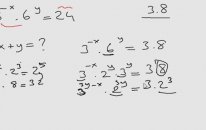 3⁻ˣ · 6ʸ = 24
3.8
x + y = ?
3⁻ˣ · 6ʸ = 3.8
· 2³ = 2ʸ
3⁻ˣ · 2ʸ · 3ʸ = 3·8
· 8 = 32
3ʸ⁻ˣ · 2ʸ = 3 · 2³